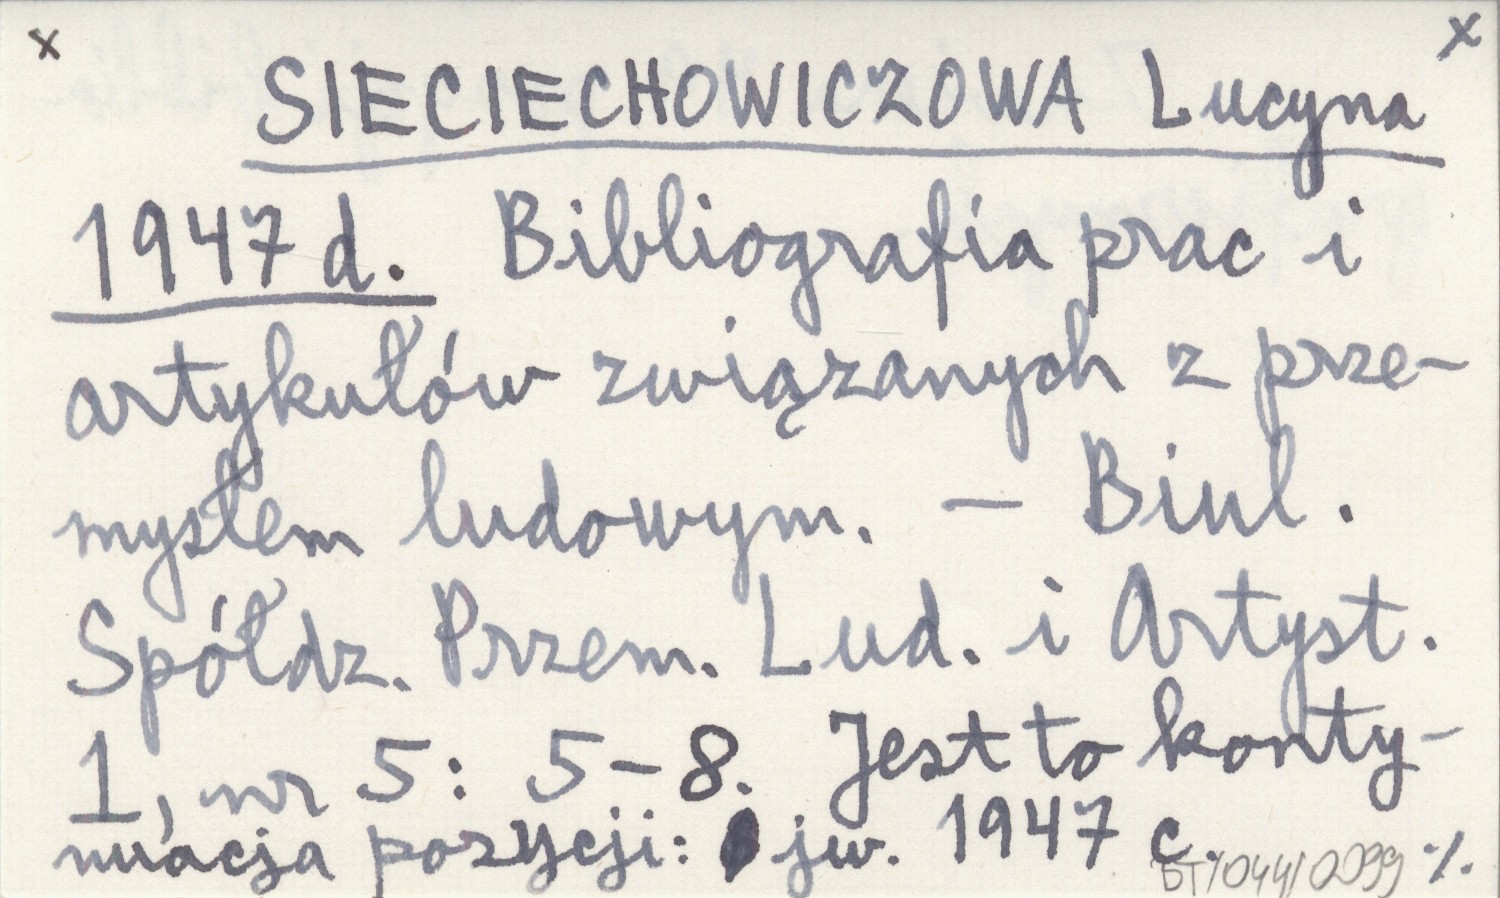 x x
SIECIECHOWICZOWA Lucyna
1947 d. Bibliografia prac i
artykułów związanych z prze-
mysłem ludowym. — Biul.
Spółdz. Przem. Lud. i Artyst.
1, nr 5: 5-8. Jest to konty-
nuacja pozycji: jw. 1947 c. ./.
BT/044/2099